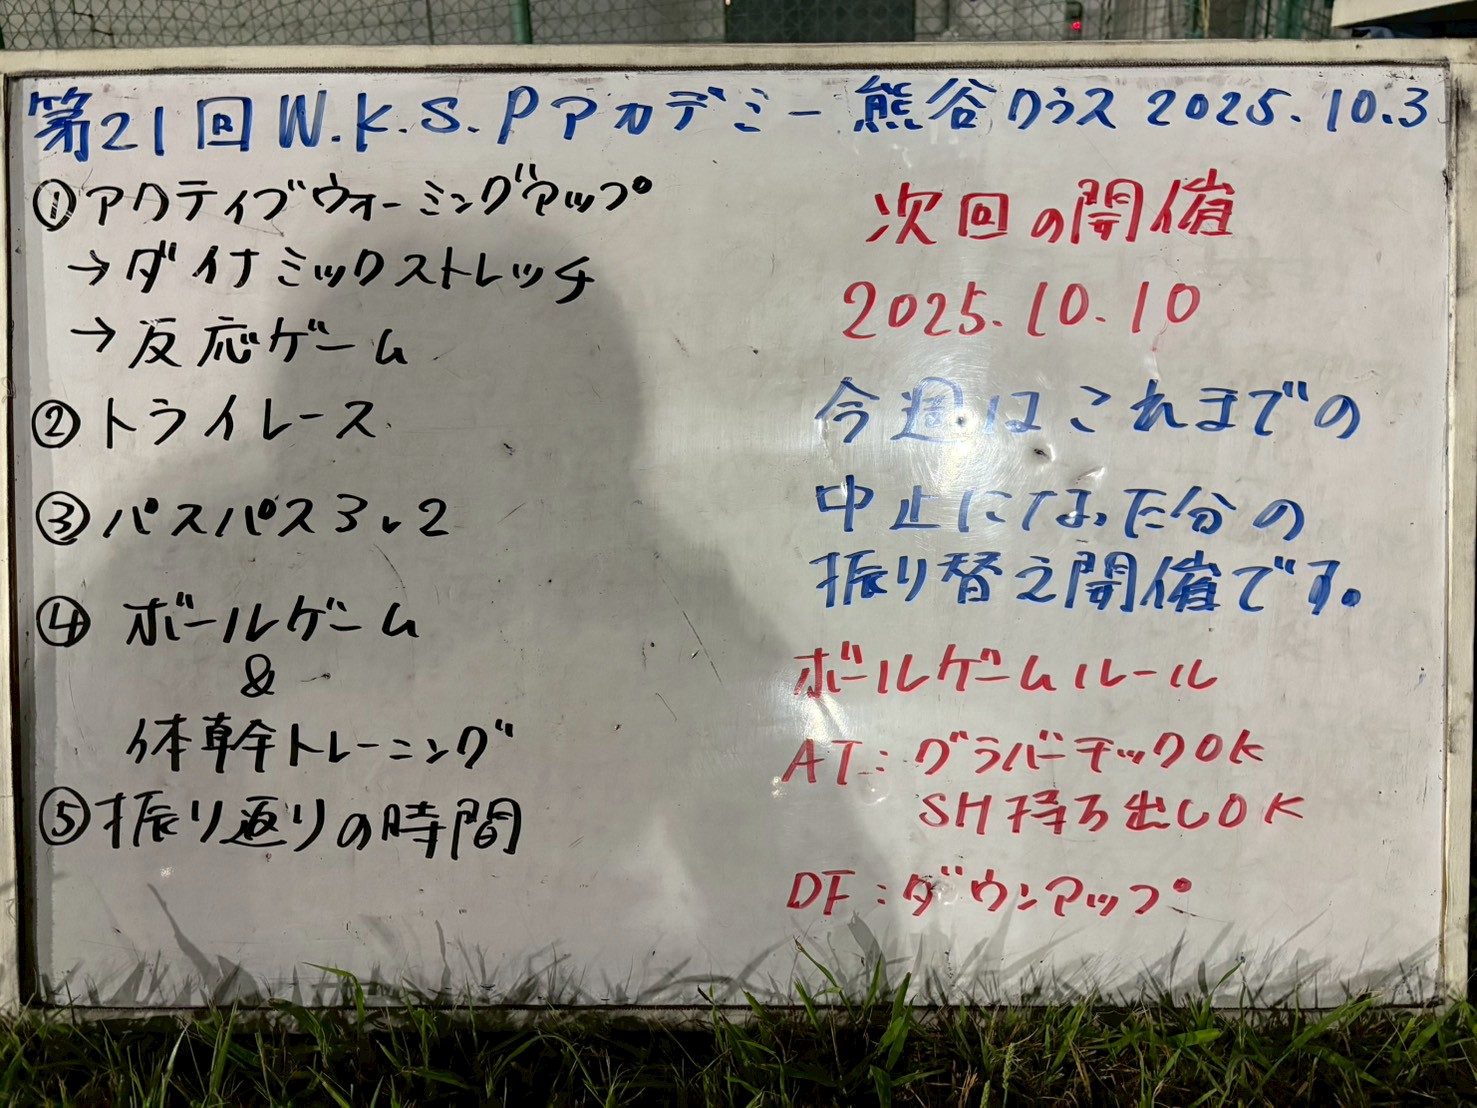 第21回 W.K.S.Pアカデミー 熊谷クラス 2025.10.3
①アクティブウォーミングアップ
→ダイナミックストレッチ
→反応ゲーム
②トライレース
③パスパス3v2
④ボールゲーム
&
体幹トレーニング
⑤振り返りの時間
次回の開催
2025.10.10
今週はこれまでの
中止になった分の
振り替え開催です。
ボールゲームルール
AT:グラバーチックOK
SH持ち出しOK
DF:ダウンアップ